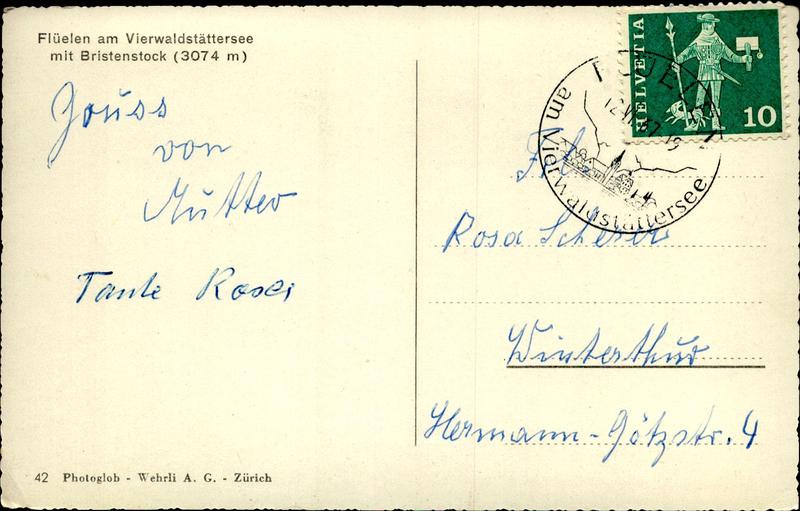 Flüelen am Vierwaldstättersee
mit Bristenstock (3074 m)
Gruss
von
Mutter
Tante Rosei
HELVETIA
10
FLÜELEN
am Vierwaldstättersee
Frl.
Rosa Scherer
Winterthur
Hermann-Götzstr. 4
42 Photoglob - Wehrli A. G. - Zürich